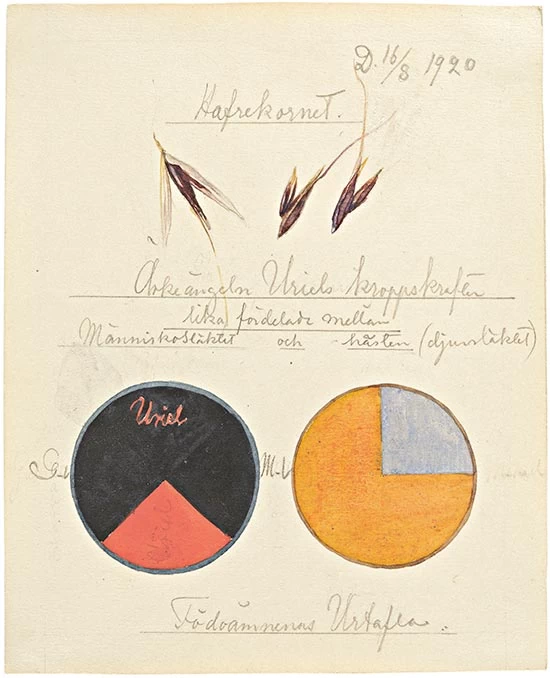 D. 16/8 1920
Hafrekornet.
Ärkeängeln Uriels kroppskrafter
lika fördelade mellan
Människosläktet och hästen (djursläktet)
Uriel
G-l M-l
Födoämnenas Urtafla.